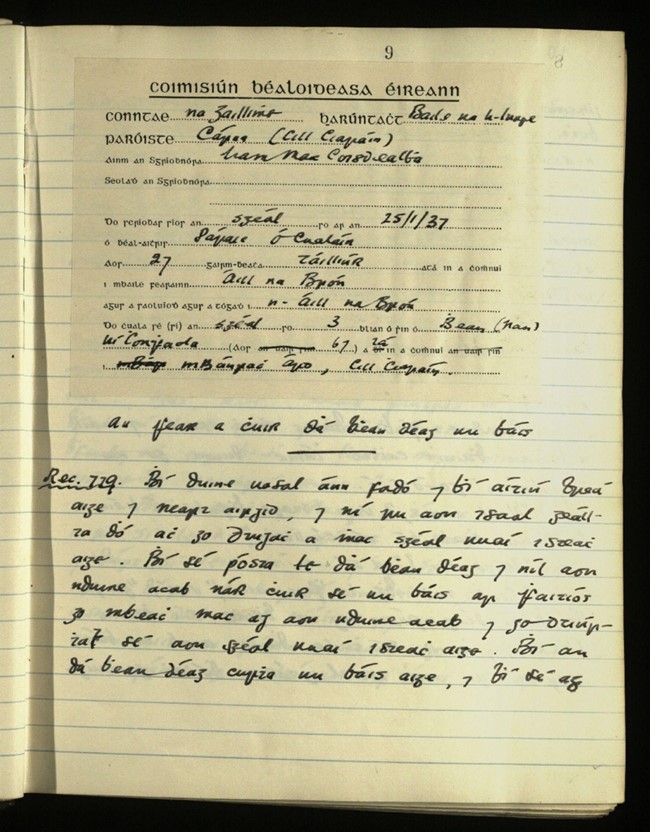 9
coimisiún béaloideasa éireann
conntae na Gaillimhe barúntacht Baile na h-Innse
paróiste Cárna (Cill Ciaráin)
Ainm an Sgríobhnóra Liam Mac Coisdealbha
Seoladh an Sgríobhnóra
Do scríobhas síos an scéal so ar an 25/1/37
ó bhéal-aithris Pádhraic Ó Cualáin
Aois 27 gairm-bheatha Táilliúr atá in a chomhnuí
i mbaile fearainn Aill na Brón
agus a saoluíodh agus a tógadh i n-Aill na Brón
Do chuala sé (sí) an scéal so 3 blian ó shin ó Bean (Nan)
Ní Conghaola (Aois an uair sin 67) a bhí tá in a comhnuí an uair sin
i mBánrach Árd, Cill Ciaráin.
An fear a chuir dhá bhean déag un báis
Rec. 779. Bhí duine uasal ann fadó ⁊ bhí áitiú breá
aige ⁊ neart airgid, ⁊ ní
dó ach go a mac scéal nuaí isteach
aige. Bhí sé pósta le dhá bhean déag ⁊ níl aon
nduine acab nár chuir sé un báis ar fhaitíos
go mbeach mac ag aon nduine acab ⁊ go
sé aon scéal nuaí isteach aige. Bhí an
dá bhean déag curtha un báis aige, ⁊ bhí sé ag